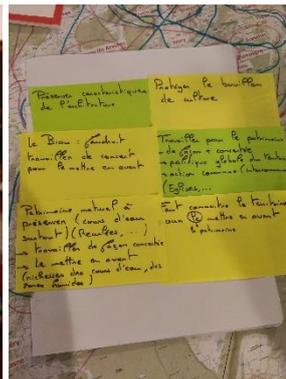 Préserver caractéristiques
de l'architecture
Protéger le bouillon
de culture
le Beau : faudrait
travailler de concert
pour le mettre en avant
Travailler pour le patrimoine
de façon concertée
→ politique globale du territoire
→ action commune
(Eglises, ...
Patrimoine naturel à
préserver (cours d'eau
surtout) (Reculées, ...)
→ travailler de façon concertée
→ le mettre en avant
(richesses des cours d'eau, des
zones humides)
Faut connaître le territoire
pour mettre en avant
le patrimoine